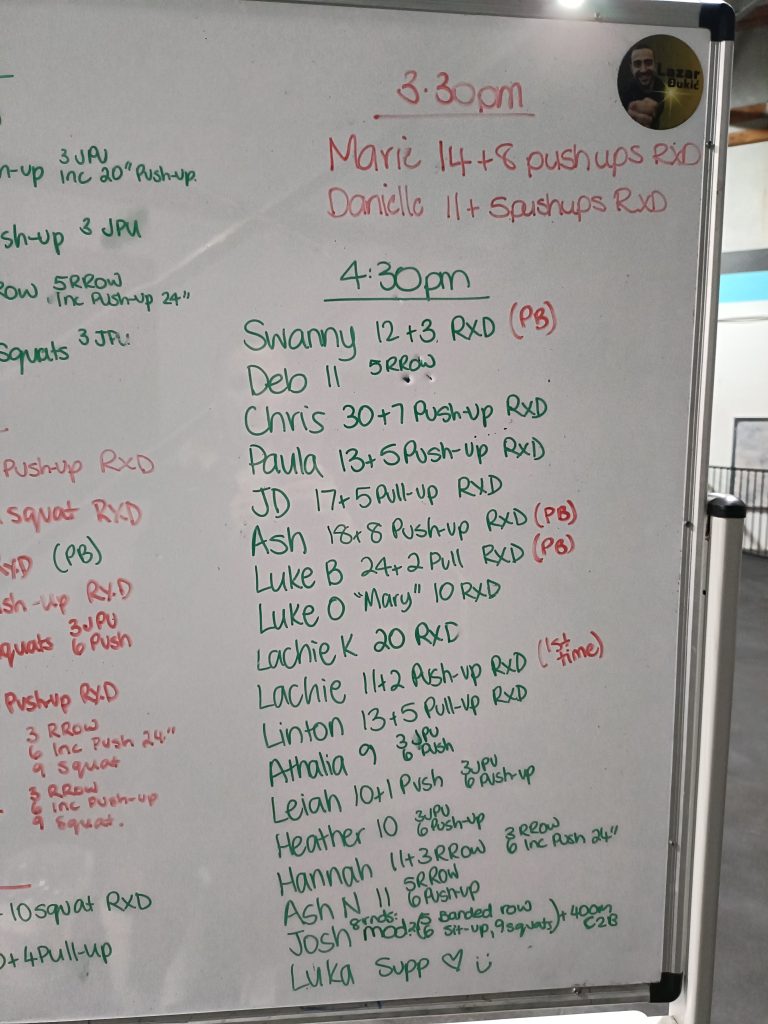 3 JPU
n-up inc 20" Push-up.
sh-up 3 JPU
5 RROW
ROW inc Push-up 24"
Squats 3 JPU
Push-up RxD
squat RXD
RxD (PB)
sh-up RxD
3 JPU
quats 6 Push
Push-up RxD
3 RROW
6 inc Push 24"
9 Squat
3 RROW
6 inc push-up
9 Squat.
10 squat RXD
+4 Pull-up
Lazar
Đukić
3.30pm
Marie 14+8 pushups RXD
Danielle 11+5pushups RXD
4:30pm
Swanny 12+3 RXD (PB)
Deb 11 5 RROW
Chris 30+7 Push-up RXD
Paula 13+5 Push-up RXD
JD 17+5 Pull-up RXD
Ash 18+8 Push-up RXD (PB)
Luke B 24+2 Pull RXD (PB)
Luke O "Mary" 10 RXD
Lachie K 20 RXD
Lachie 11+2 Push-up RXD (1st time)
Linton 13+5 Pull-up RXD
Athalia 9 3 JPU 6 Push
Leiah 10+1 Push 3 JPU 6 Push-up
Heather 10 3 JPU 6 Push-up
Hannah 11+3 RROW 3 RROW 6 inc Push 24"
Ash N 11 5 RROW 6 Push-up
Josh 8 rnds: mod: (5 banded row 6 sit-up, 9 squats) + 400m C2B
Luka Supp ♡ :)